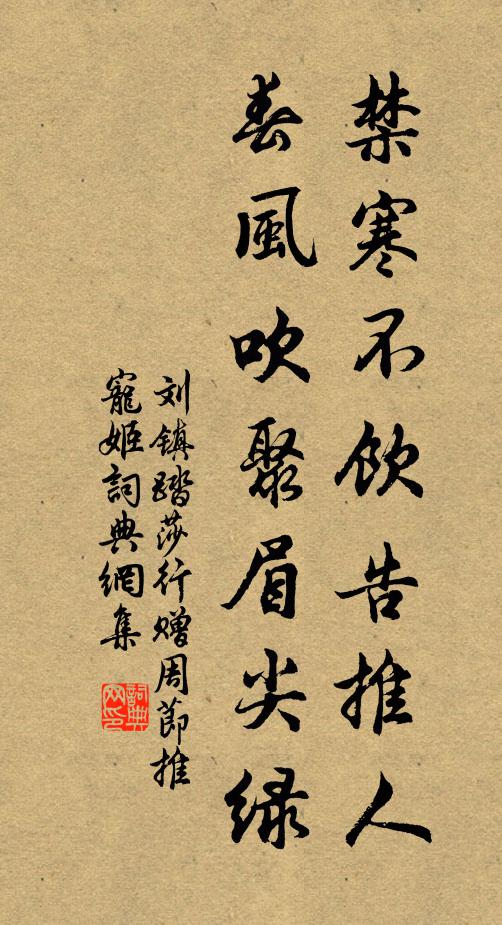 禁寒不饮告推人
春風吹聚眉尖绿
刘镇踏莎行赠周節推
寵姬詞典網集
詞典网印